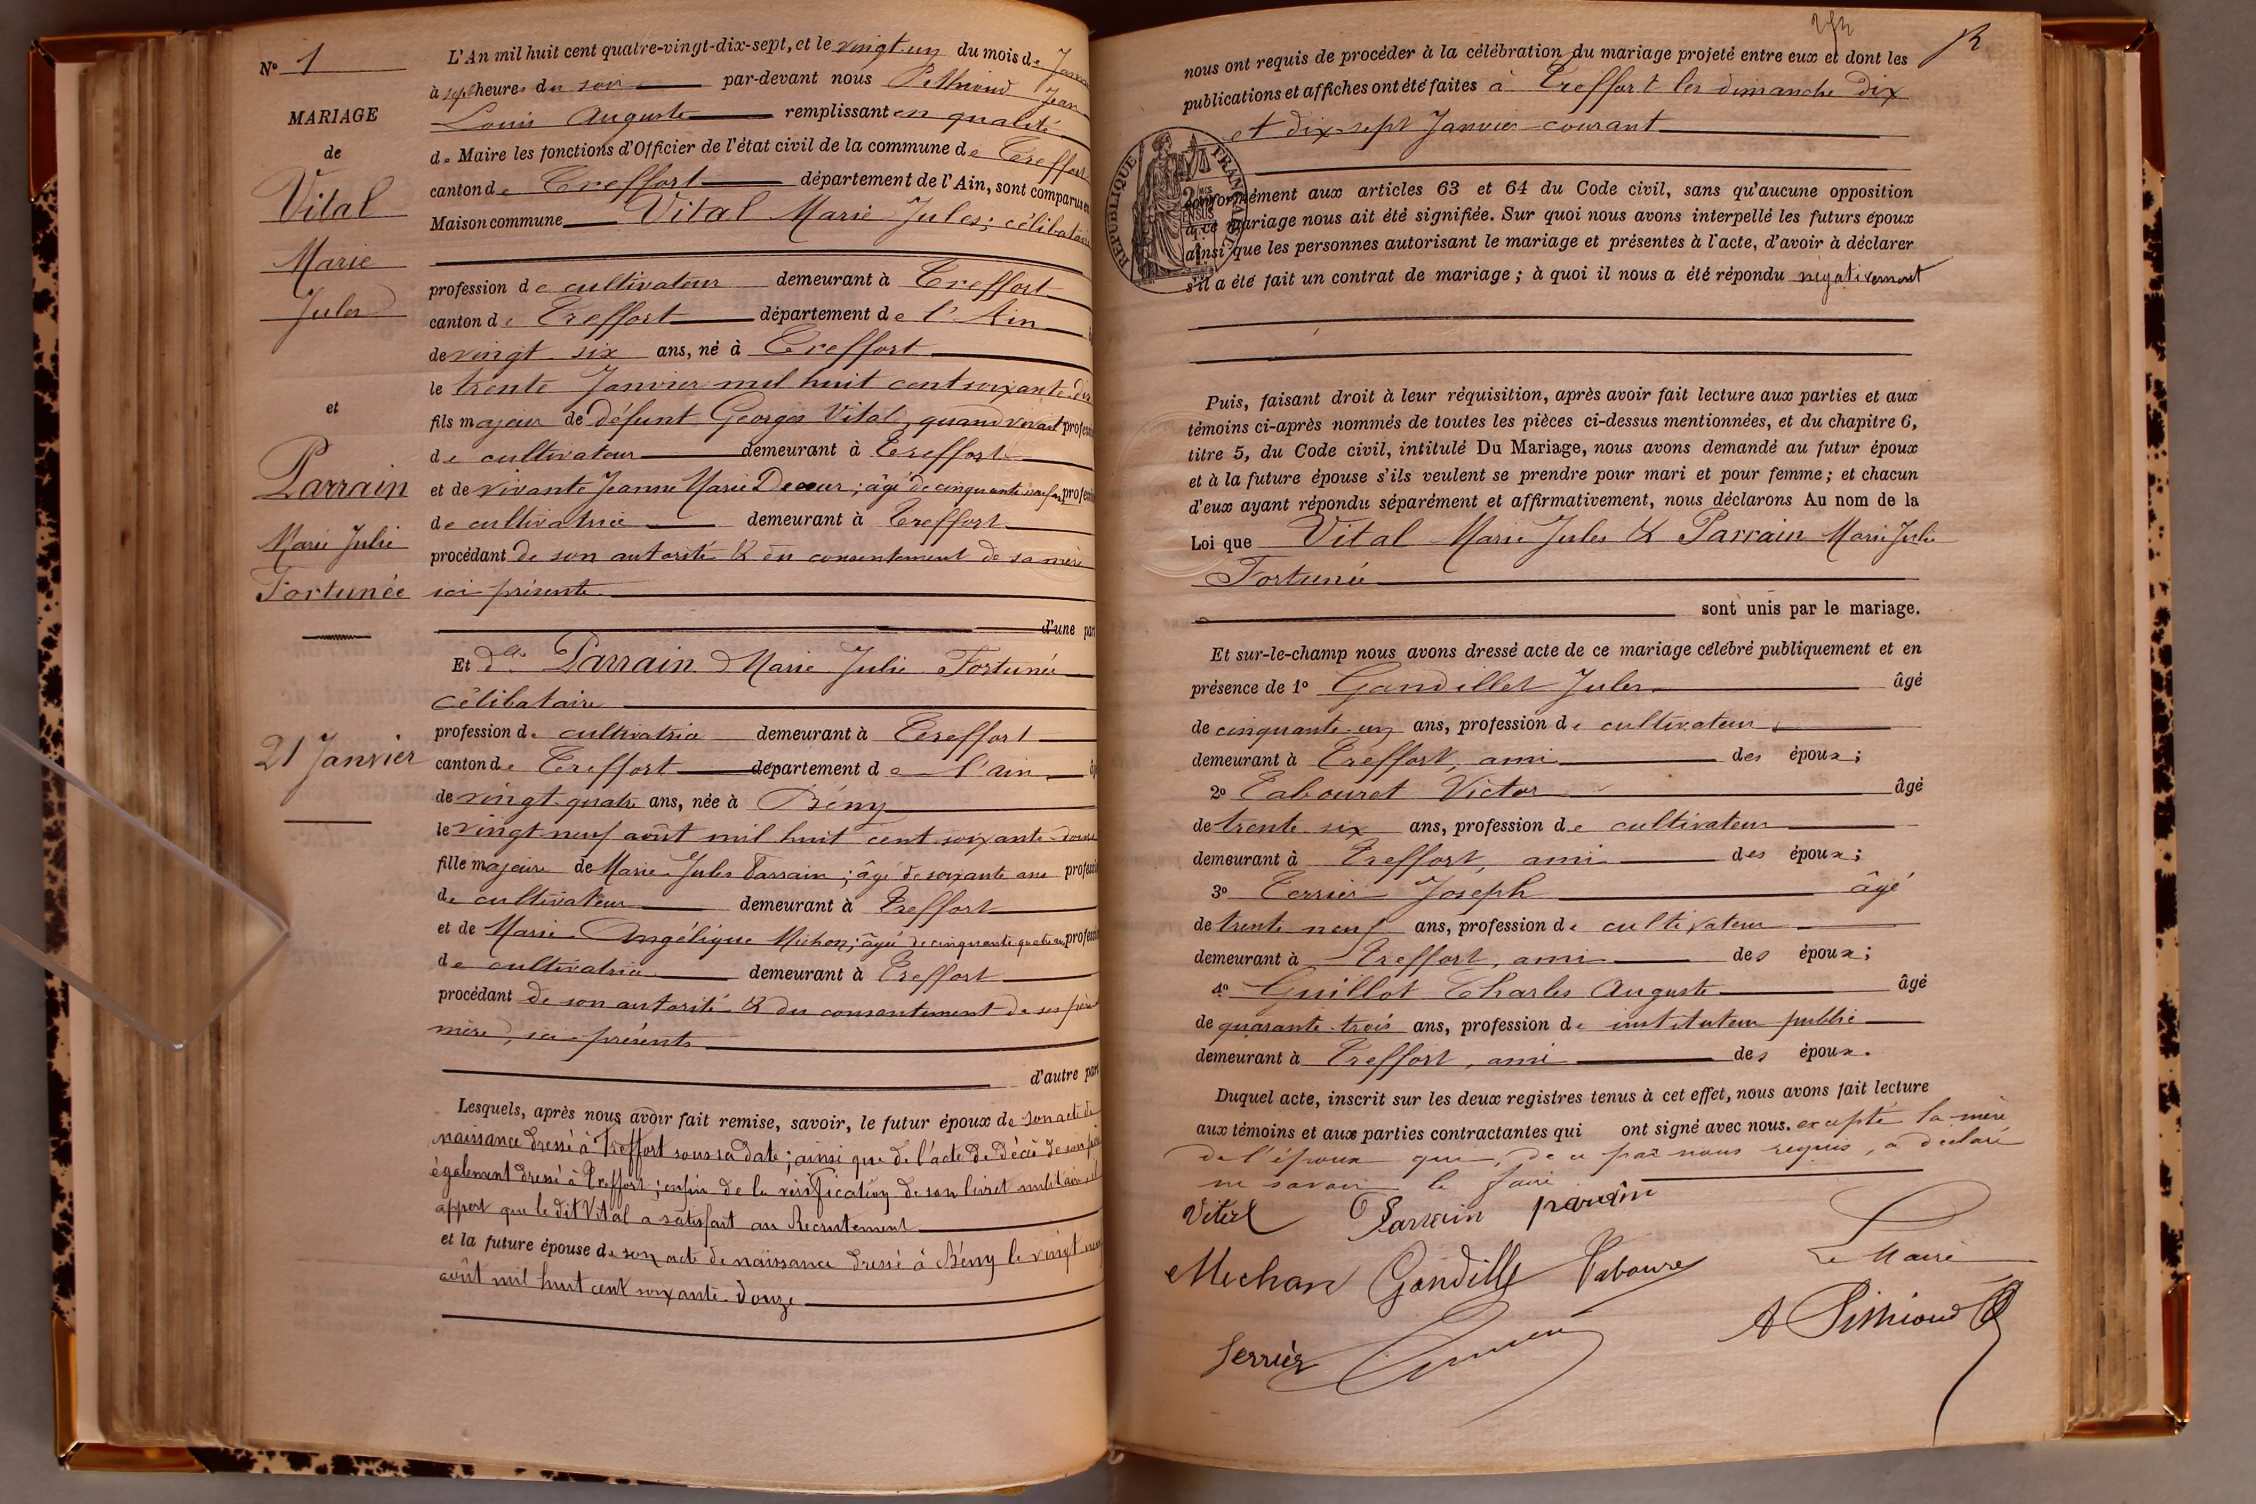 N° 1
MARIAGE
de
Vital
Marie
Jules
et
Parrain
Marie Julie
Fortunée
21 Janvier
L'An mil huit cent quatre-vingt-dix-sept, et le vingt-un du mois de Janvier
à sept heures du soir par-devant nous Pethioud Jean
Louis Auguste remplissant en qualité
de Maire les fonctions d'Officier de l'état civil de la commune de Treffort
canton de Treffort département de l'Ain, sont comparus en
Maison commune Vital Marie Jules; célibataire
profession de cultivateur demeurant à Treffort
canton de Treffort département de l'Ain
de vingt-six ans, né à Treffort
le trente Janvier mil huit cent soixante-dix
fils majeur de défunt Georges Vital, quand vivait profession
de cultivateur demeurant à Treffort
et de vivante Jeanne Marie Decœur; âgé de cinquante-neuf ans profession
de cultivatrice demeurant à Treffort
procédant de son autorité & du consentement de sa mère
ici présente
d'une part
Et dlle Parrain Marie Julie Fortunée
célibataire
profession de cultivatrice demeurant à Treffort
canton de Treffort département de l'ain
de vingt-quatre ans, née à Bény
le vingt-neuf août mil huit cent soixante-douze
fille majeure de Marie-Jules Parrain; âgé de soixante ans profession
de cultivateur demeurant à Treffort
et de Marie-Angélique Michon; âgée de cinquante-quatre ans, profession
de cultivatrice demeurant à Treffort
procédant de son autorité & du consentement de ses père
mère, ici présents
d'autre part
Lesquels, après nous avoir fait remise, savoir, le futur époux de son acte de
naissance dressé à Treffort sous sa date; ainsi que de l'acte de décès de son père
également dressé à Treffort; enfin de la vérification de son livret militaire, il
appert que le dit Vital a satisfait au Recrutement
et la future épouse de son acte de naissance dressé à Bény le vingt neuf
août mil huit cent soixante-douze
nous ont requis de procéder à la célébration du mariage projeté entre eux et dont les
publications et affiches ont été faites à Treffort les dimanche dix
et dix-sept Janvier courant
RÉPUBLIQUE FRANÇAISE
conformément aux articles 63 et 64 du Code civil, sans qu'aucune opposition
à ce mariage nous ait été signifiée. Sur quoi nous avons interpellé les futurs époux
ainsi que les personnes autorisant le mariage et présentes à l'acte, d'avoir à déclarer
s'il a été fait un contrat de mariage; à quoi il nous a été répondu négativement
Puis, faisant droit à leur réquisition, après avoir fait lecture aux parties et aux
témoins ci-après nommés de toutes les pièces ci-dessus mentionnées, et du chapitre 6,
titre 5, du Code civil, intitulé Du Mariage, nous avons demandé au futur époux
et à la future épouse s'ils veulent se prendre pour mari et pour femme; et chacun
d'eux ayant répondu séparément et affirmativement, nous déclarons Au nom de la
Loi que Vital Marie Jules & Parrain Marie Julie
Fortunée
sont unis par le mariage.
Et sur-le-champ nous avons dressé acte de ce mariage célébré publiquement et en
présence de 1° Gandillet Jules âgé
de cinquante-un ans, profession de cultivateur
demeurant à Treffort, ami des époux;
2° Tabouret Victor âgé
de trente-six ans, profession de cultivateur
demeurant à Treffort, ami des époux;
3° Terrier Joseph âgé
de trente-neuf ans, profession de cultivateur
demeurant à Treffort, ami des époux;
4° Guillot Charles Auguste âgé
de quarante-trois ans, profession de instituteur public
demeurant à Treffort, ami des époux.
Duquel acte, inscrit sur les deux registres tenus à cet effet, nous avons fait lecture
aux témoins et aux parties contractantes qui ont signé avec nous. excepté la mère
de l'époux que, de ce par nous requis, a déclaré
ne savoir le faire
Vital Parrain parrain
Michon Gandillet Tabouret Le Maire
Terrier